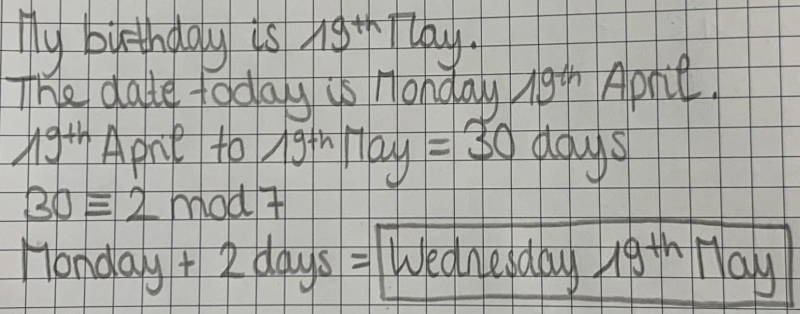 My birthday is 19th May.
The date today is Monday 19th April.
19th April to 19th May = 30 days
30 ≡ 2 mod 7
Monday + 2 days = Wednesday 19th May